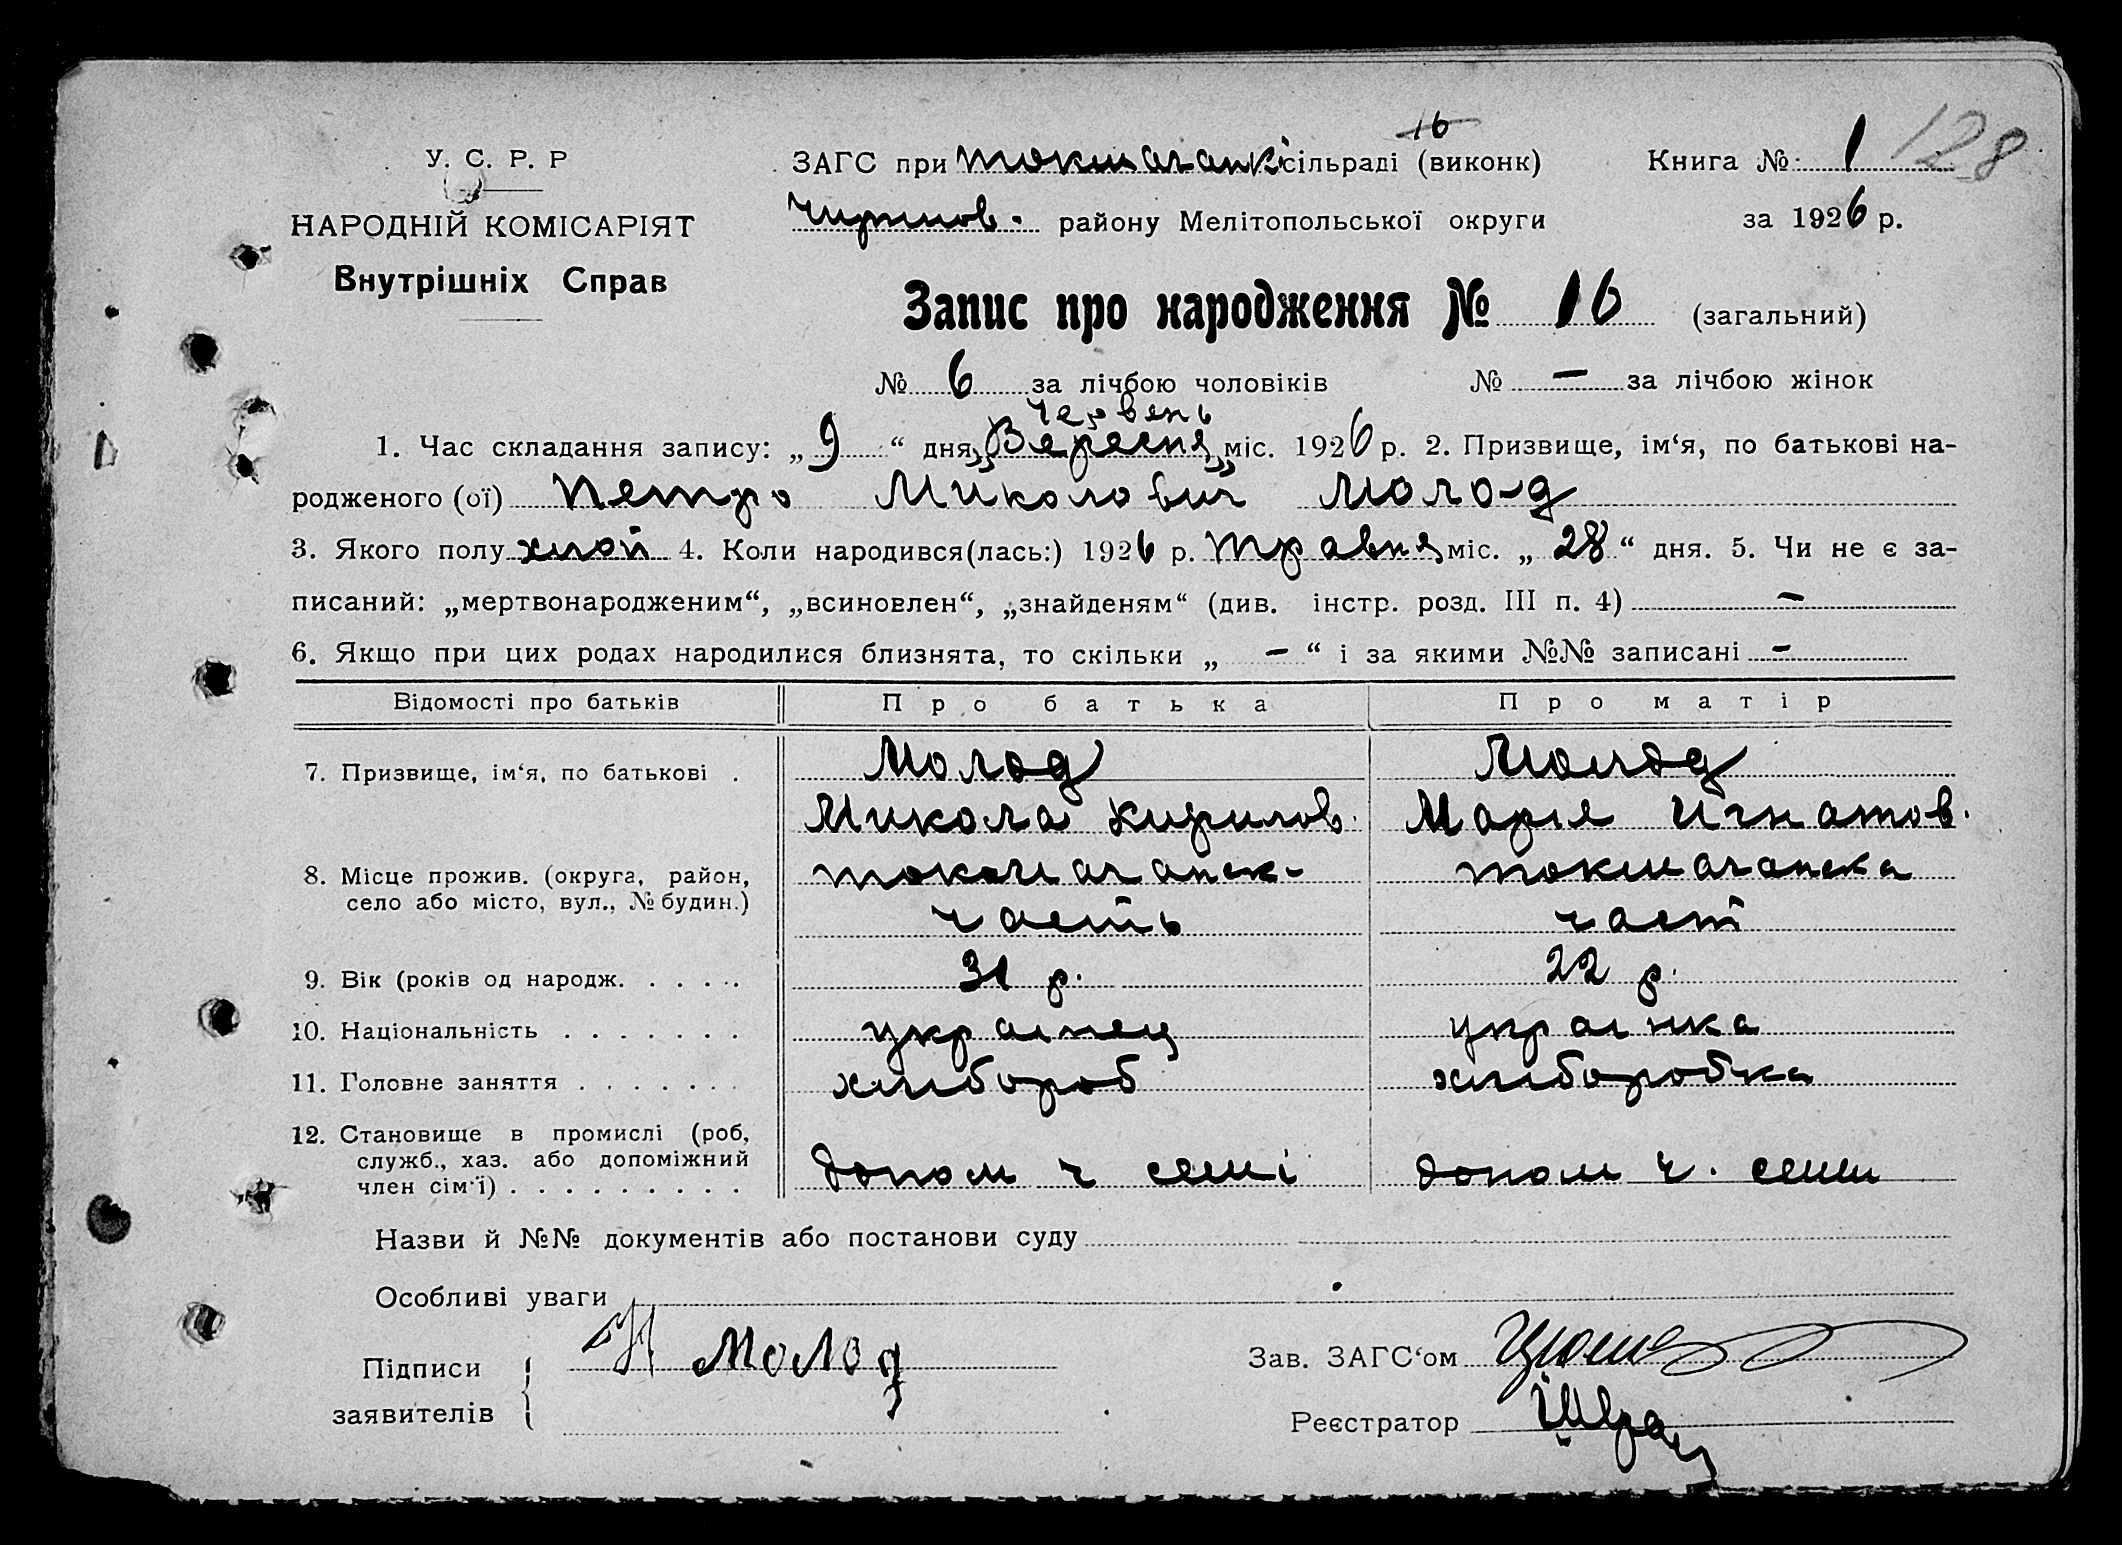 16
У. С. Р. Р ЗАГС при сільраді (виконк) Книга № 1 128
НАРОДНІЙ КОМІСАРІЯТ району Мелітопольської округи за 1926 р.
Внутрішніх Справ
Запис про народження № 16 (загальний)
№ 6 за лічбою чоловіків № — за лічбою жінок
Червень
1. Час складання запису: „ 9 “ дня „Вересня„ міс. 1926 р. 2. Призвище, ім‘я, по батькові на-
родженого (ої) Петро Миколович Молод
3. Якого полу хлоп 4. Коли народився(лась:) 1926 р. Травня міс. „ 28 “ дня. 5. Чи не є за-
писаний: „мертвонародженим“, „всиновлен“, „знайденям“ (див. інстр. розд. III п. 4) —
6. Якщо при цих родах народилися близнята, то скільки „ — “ і за якими №№ записані —
Відомості про батьків Про батька Про матір
7. Призвище, ім‘я, по батькові . Молод Молод
Микола Кирилов. Марія Игнатов.
8. Місце прожив. (округа, район,
село або місто, вул., № будин.)
часть част
9. Вік (років од народж. . . . . . 31 р. 22 р.
10. Національність . . . . . . . українец українка
11. Головне заняття . . . . . . . хлібороб хліборобка
12. Становище в промислі (роб,
служб., хаз. або допоміжний
член сім‘ї) . . . . . . . . . допом ч семі допом ч. семи
Назви й №№ документів або постанови суду
Особливі уваги
Підписи Молод Зав. ЗАГС‘ом
заявителів Реєстратор